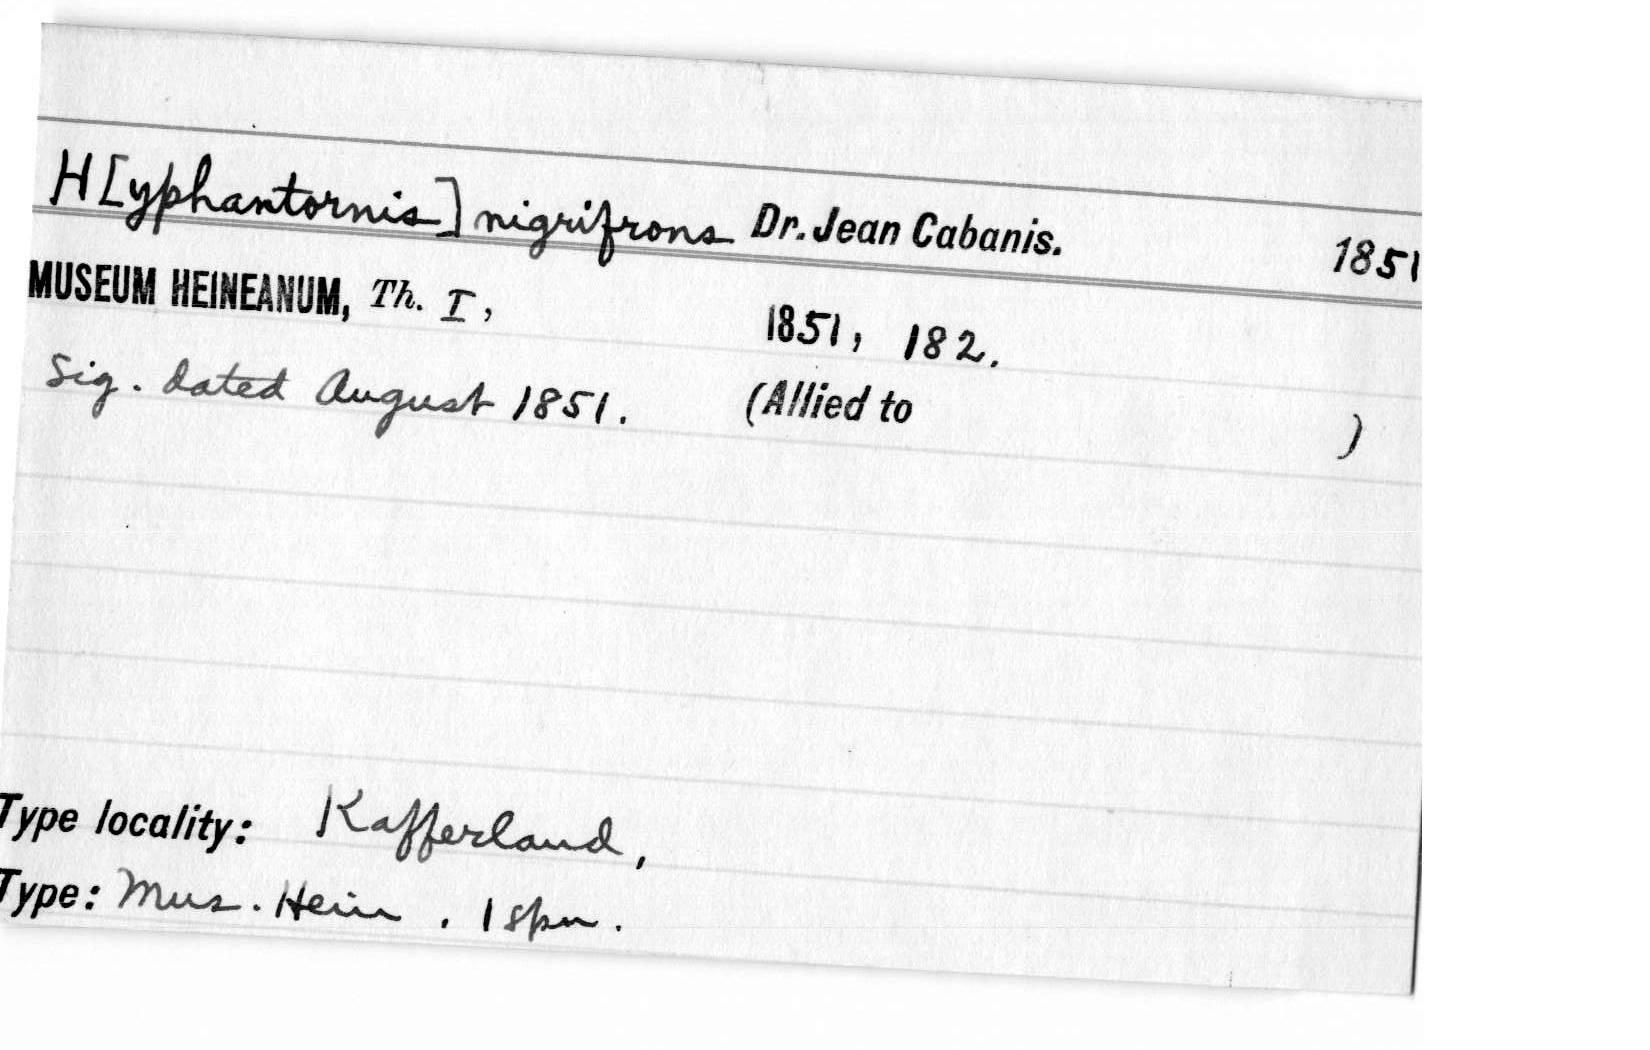 H[yphantornis] nigrifrons Dr. Jean Cabanis. 1851
MUSEUM HEINEANUM, Th. I, 1851, 182.
Sig. dated August 1851. (Allied to )
Type locality: Kafferland,
Type: Mus. Hein . 1 spn.